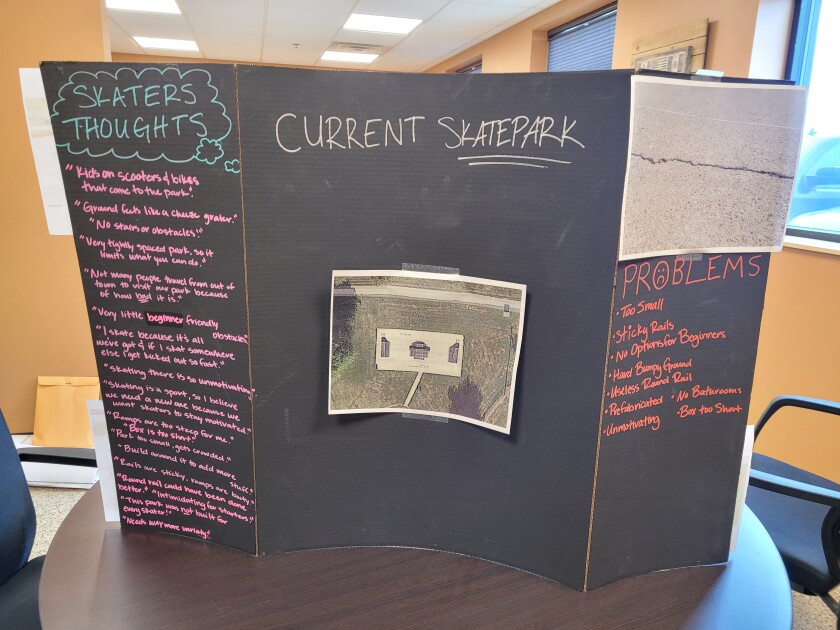 SKATERS
THOUGHTS
"Kids on scooters & bikes
that come to the park."
"Ground feels like a cheeze grater."
"No stairs or obstacles!"
"Very tightly spaced park, so it
limits what you can do."
"Not many people travel from out of
town to visit our park because
of how bad it is"
"Very little beginner friendly
obstacles"
"I skate because it's all
we've got & if I skat somewhere
else I get kicked out so fast."
"Skating there is so unmotivating"
"Skating is a sport, so I believe
we need a new one because we
want skaters to stay motivated."
"Ramps are too steep for me."
"Box is too short"
"Park too small, gets crowded."
"Build around it to add more
stuff."
"Rails are sticky, ramps are
"Round rail could have been done
better." "Intimidating for starters."
"This park was not built for
every skater!"
"Needs way more variety!"
CURRENT SKATEPARK
PROBLEMS
• Too Small
• Sticky Rails
• No Options for Beginners
• Hard Bumpy Ground
• Useless Round Rail
• Prefabricated • No Bathrooms
• Unmotivating • Box too Short